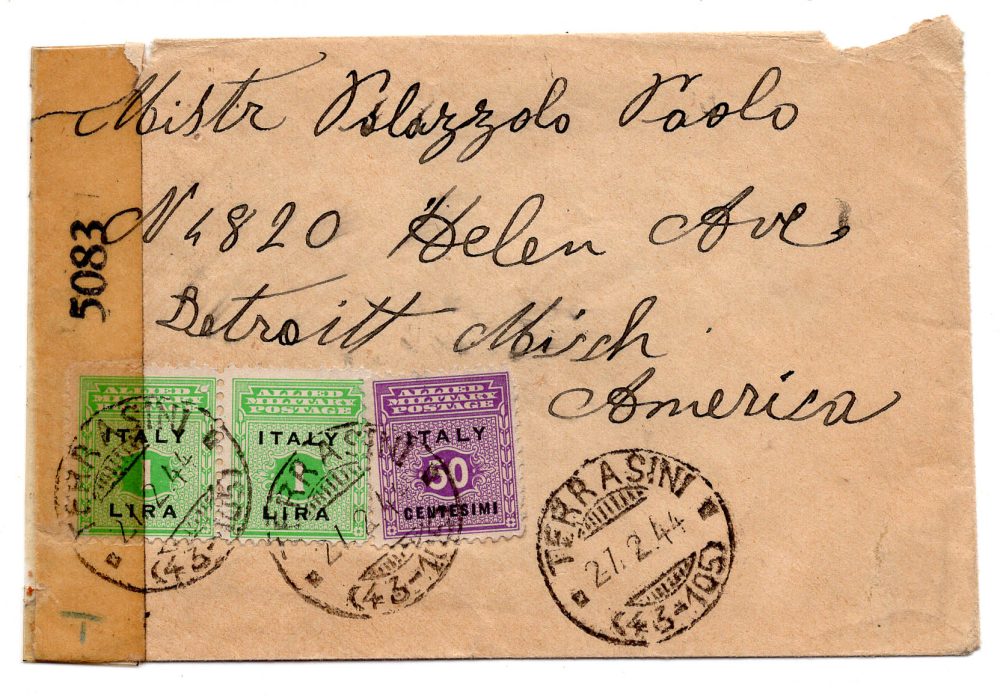 Mistr Palazzolo Paolo
N 4820 Helen Ave
Detroitt Misch
America
5083
ALLIED
MILITARY
POSTAGE
ITALY
1
LIRA
ALLIED
MILITARY
POSTAGE
ITALY
1
LIRA
ALLIED
MILITARY
POSTAGE
ITALY
50
CENTESIMI
TERRASINI
2.44
(43-105)
TERRASINI
27.2
(43-105)
TERRASINI
27.2.44
(43-105)